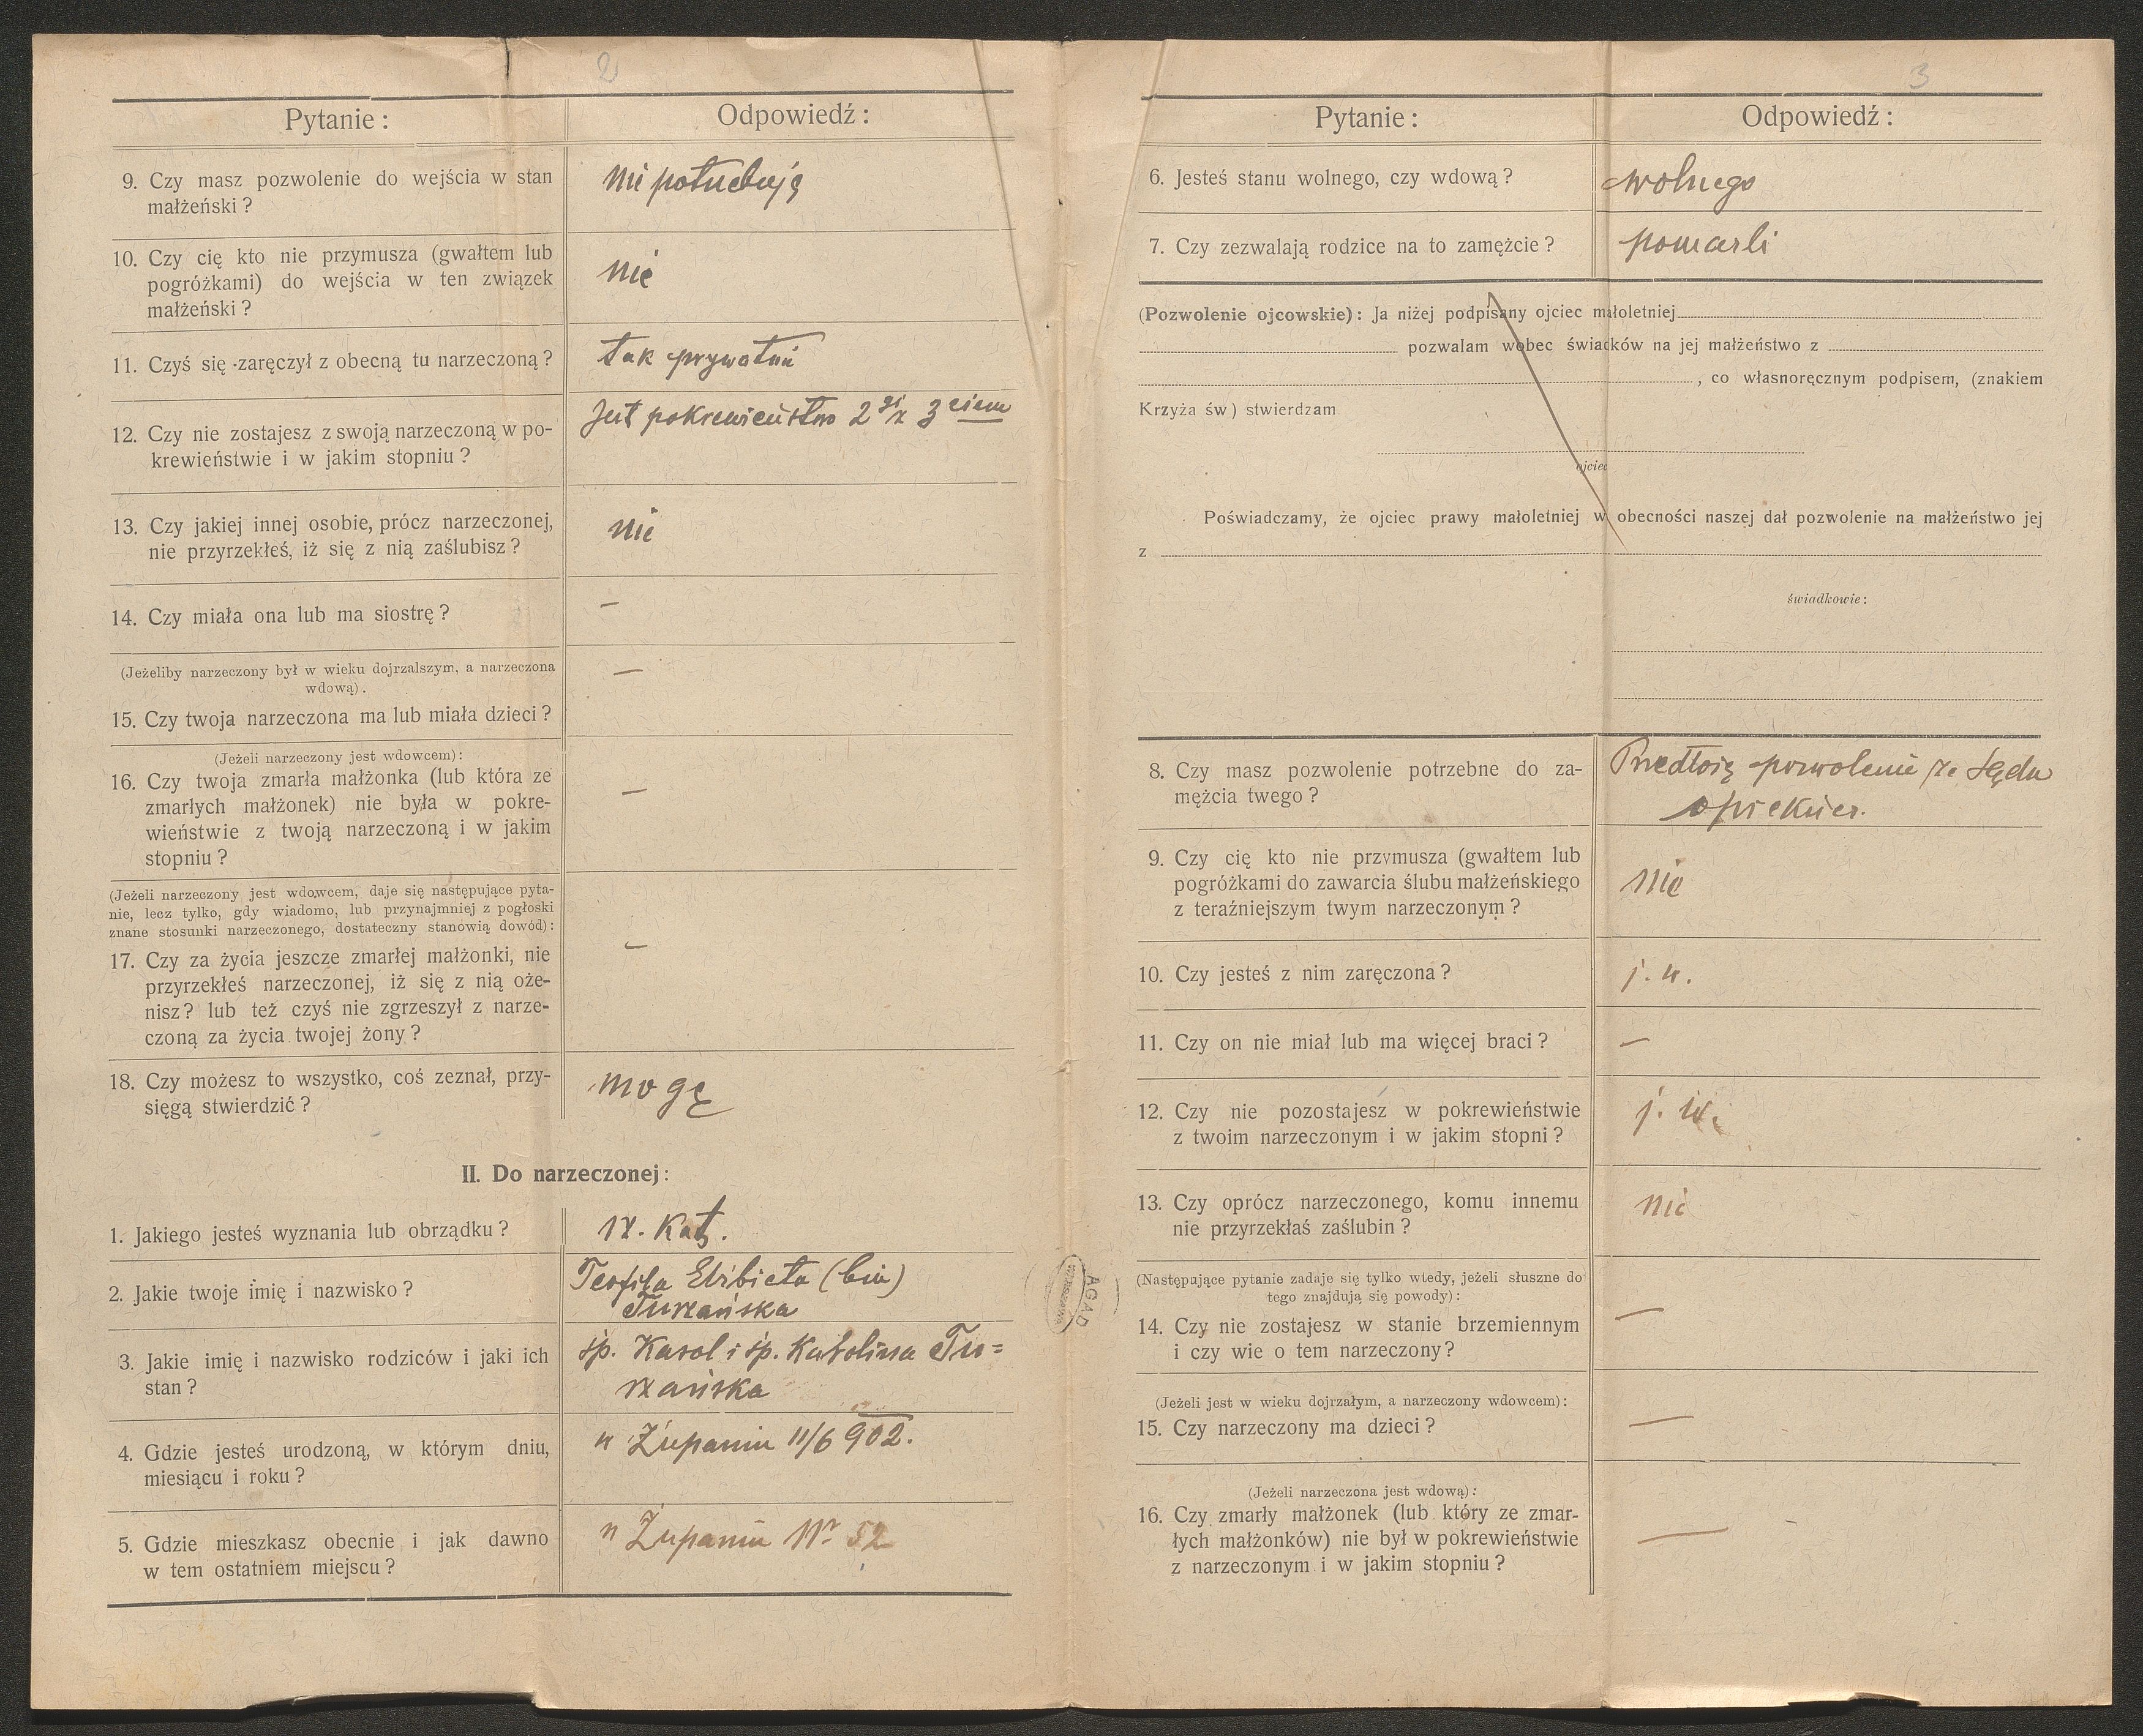 2
Pytanie:
Odpowiedź:
9. Czy masz pozwolenie do wejścia w stan
małżeński?
nie potrzebuję
10. Czy cię kto nie przymusza (gwałtem lub
pogróżkami) do wejścia w ten związek
małżeński?
nie
11. Czyś się zaręczył z obecną tu narzeczoną?
tak prywatnie
12. Czy nie zostajesz z swoją narzeczoną w po-
krewieństwie i w jakim stopniu?
Jest pokrewieństwo 2gi z 3ciem
13. Czy jakiej innej osobie, prócz narzeczonej,
nie przyrzekłeś, iż się z nią zaślubisz?
nie
14. Czy miała ona lub ma siostrę?
—
(Jeżeliby narzeczony był w wieku dojrzalszym, a narzeczona
wdową).
15. Czy twoja narzeczona ma lub miała dzieci?
—
(Jeżeli narzeczony jest wdowcem):
16. Czy twoja zmarła małżonka (lub która ze
zmarłych małżonek) nie była w pokre-
wieństwie z twoją narzeczoną i w jakim
stopniu?
—
(Jeżeli narzeczony jest wdowcem, daje się następujące pyta-
nie, lecz tylko, gdy wiadomo, lub przynajmniej z pogłoski
znane stosunki narzeczonego, dostateczny stanowią dowód):
17. Czy za życia jeszcze zmarłej małżonki, nie
przyrzekłeś narzeczonej, iż się z nią oże-
nisz? lub też czyś nie zgrzeszył z narze-
czoną za życia twojej żony?
—
18. Czy możesz to wszystko, coś zeznał, przy-
sięgą stwierdzić?
mogę
II. Do narzeczonej:
1. Jakiego jesteś wyznania lub obrządku?
rz. kat.
2. Jakie twoje imię i nazwisko?
Teofila Elżbieta (bin)
Turzańska
3. Jakie imię i nazwisko rodziców i jaki ich
stan?
śp. Karol i śp. Karolina Tu=
rzańska
4. Gdzie jesteś urodzoną, w którym dniu,
miesiącu i roku?
w Żupaniu 11/6 902.
5. Gdzie mieszkasz obecnie i jak dawno
w tem ostatniem miejscu?
w Żupaniu Nr 52
AGAD
3
Pytanie:
Odpowiedź:
6. Jesteś stanu wolnego, czy wdową?
wolnego
7. Czy zezwalają rodzice na to zamężcie?
pomarli
(Pozwolenie ojcowskie): Ja niżej podpisany ojciec małoletniej
pozwalam wobec świadków na jej małżeństwo z
, co własnoręcznym podpisem, (znakiem
Krzyża św) stwierdzam
ojciec
Poświadczamy, że ojciec prawy małoletniej w obecności naszej dał pozwolenie na małżeństwo jej
z
świadkowie:
8. Czy masz pozwolenie potrzebne do za-
mężcia twego?
Przedłożę pozwolenie ze Sądu
opiekuń.
9. Czy cię kto nie przymusza (gwałtem lub
pogróżkami do zawarcia ślubu małżeńskiego
z teraźniejszym twym narzeczonym?
nie
10. Czy jesteś z nim zaręczona?
j. w.
11. Czy on nie miał lub ma więcej braci?
—
12. Czy nie pozostajesz w pokrewieństwie
z twoim narzeczonym i w jakim stopni?
j. w.
13. Czy oprócz narzeczonego, komu innemu
nie przyrzekłaś zaślubin?
nie
(Następujące pytanie zadaje się tylko wtedy, jeżeli słuszne do
tego znajdują się powody):
14. Czy nie zostajesz w stanie brzemiennym
i czy wie o tem narzeczony?
—
(Jeżeli jest w wieku dojrzałym, a narzeczony wdowcem):
15. Czy narzeczony ma dzieci?
—
(Jeżeli narzeczona jest wdową):
16. Czy zmarły małżonek (lub który ze zmar-
łych małżonków) nie był w pokrewieństwie
z narzeczonym i w jakim stopniu?
—